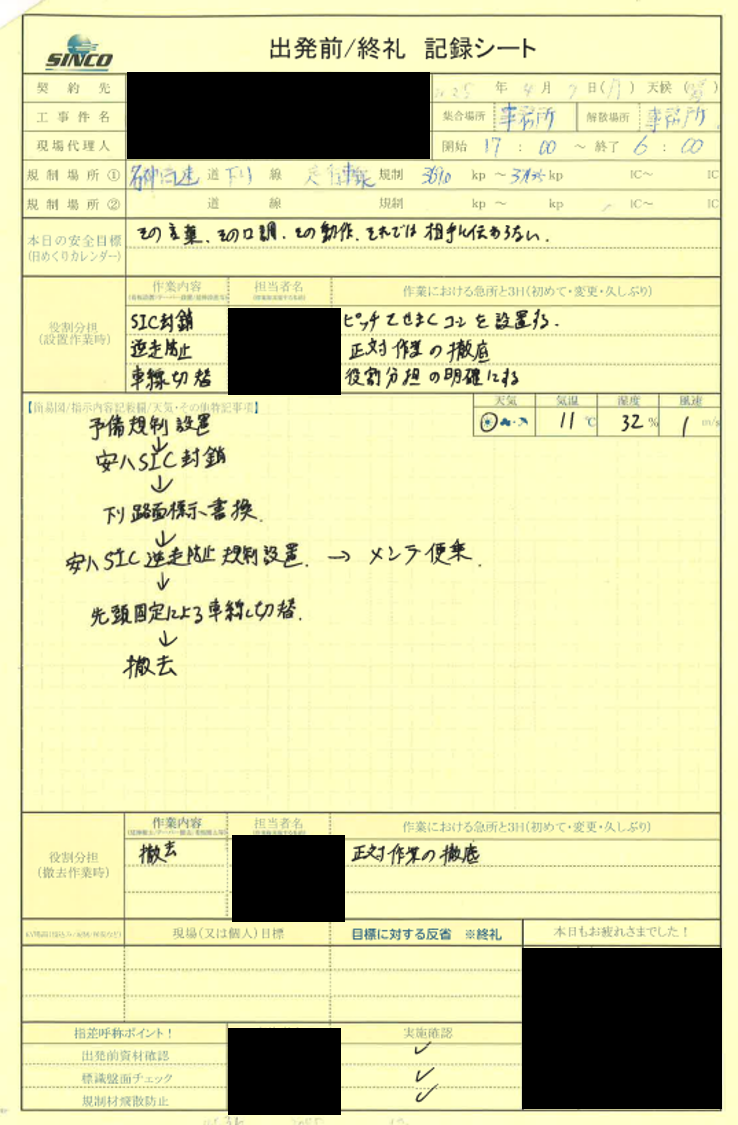 SINCO
出発前/終礼 記録シート
契約先
2025 年 4 月 7 日(月) 天候 (晴)
工事件名
集合場所 事務所 解散場所 事務所
現場代理人
開始 17 : 00 ～ 終了 6 : 00
規制場所① 名神高速 道 下り 線 走行車線 規制 369.0 kp ～ kp IC～ IC
規制場所② 道 線 規制 kp ～ kp IC～ IC
本日の安全目標 その言葉、その口調、その動作、それでは相手に伝わらない.
(日めくりカレンダー)
作業内容 担当者名 作業における急所と3H(初めて・変更・久しぶり)
役割分担
(設置作業時)
SIC封鎖 ピッチてせまくコンを設置する.
逆走防止 正対作業の撤底
車線切替 役割分担の明確にする
【簡易図/指示内容記載欄/天気・その他特記事項】
天気 気温 湿度 風速
11 ℃ 32 % 1 m/s
予備規制設置
↓
安八SIC封鎖
↓
下り路面標示書換.
↓
安八SIC逆走防止規制設置. → メンテ便乗.
↓
先頭固定による車線切替.
↓
撤去
作業内容 担当者名 作業における急所と3H(初めて・変更・久しぶり)
役割分担
(撤去作業時)
撤去 正対作業の撤底
現場(又は個人)目標 目標に対する反省 ※終礼 本日もお疲れさまでした！
指差呼称ポイント！ 実施確認
出発前資材確認 ✓
標識盤面チェック ✓
規制材飛散防止 ✓